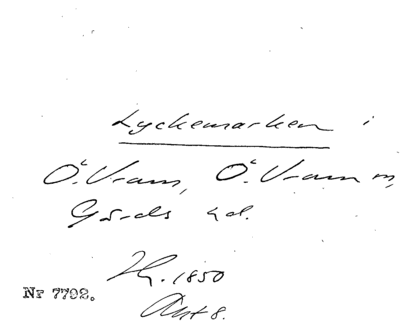 Lyckemarken i
Ö. Vram, Ö. Vram sn,
Gärds hd.
Hg. 1850
Akt 8.
Nr 7792.